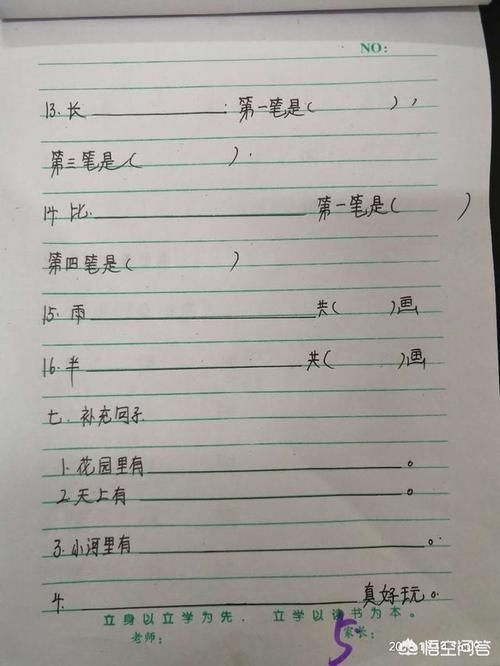 NO:
13. 长____________: 第一笔是( ),
第三笔是( ).
14. 比____________ 第一笔是( )
第四笔是( )
15. 雨____________共( )画
16. 半____________共( )画
七. 补充句子
1. 花园里有____________。
2. 天上有____________。
3. 小河里有____________。
4. ____________真好玩。
立身以立学为先, 立学以读书为本。
老师: 家长:
5
悟空问答